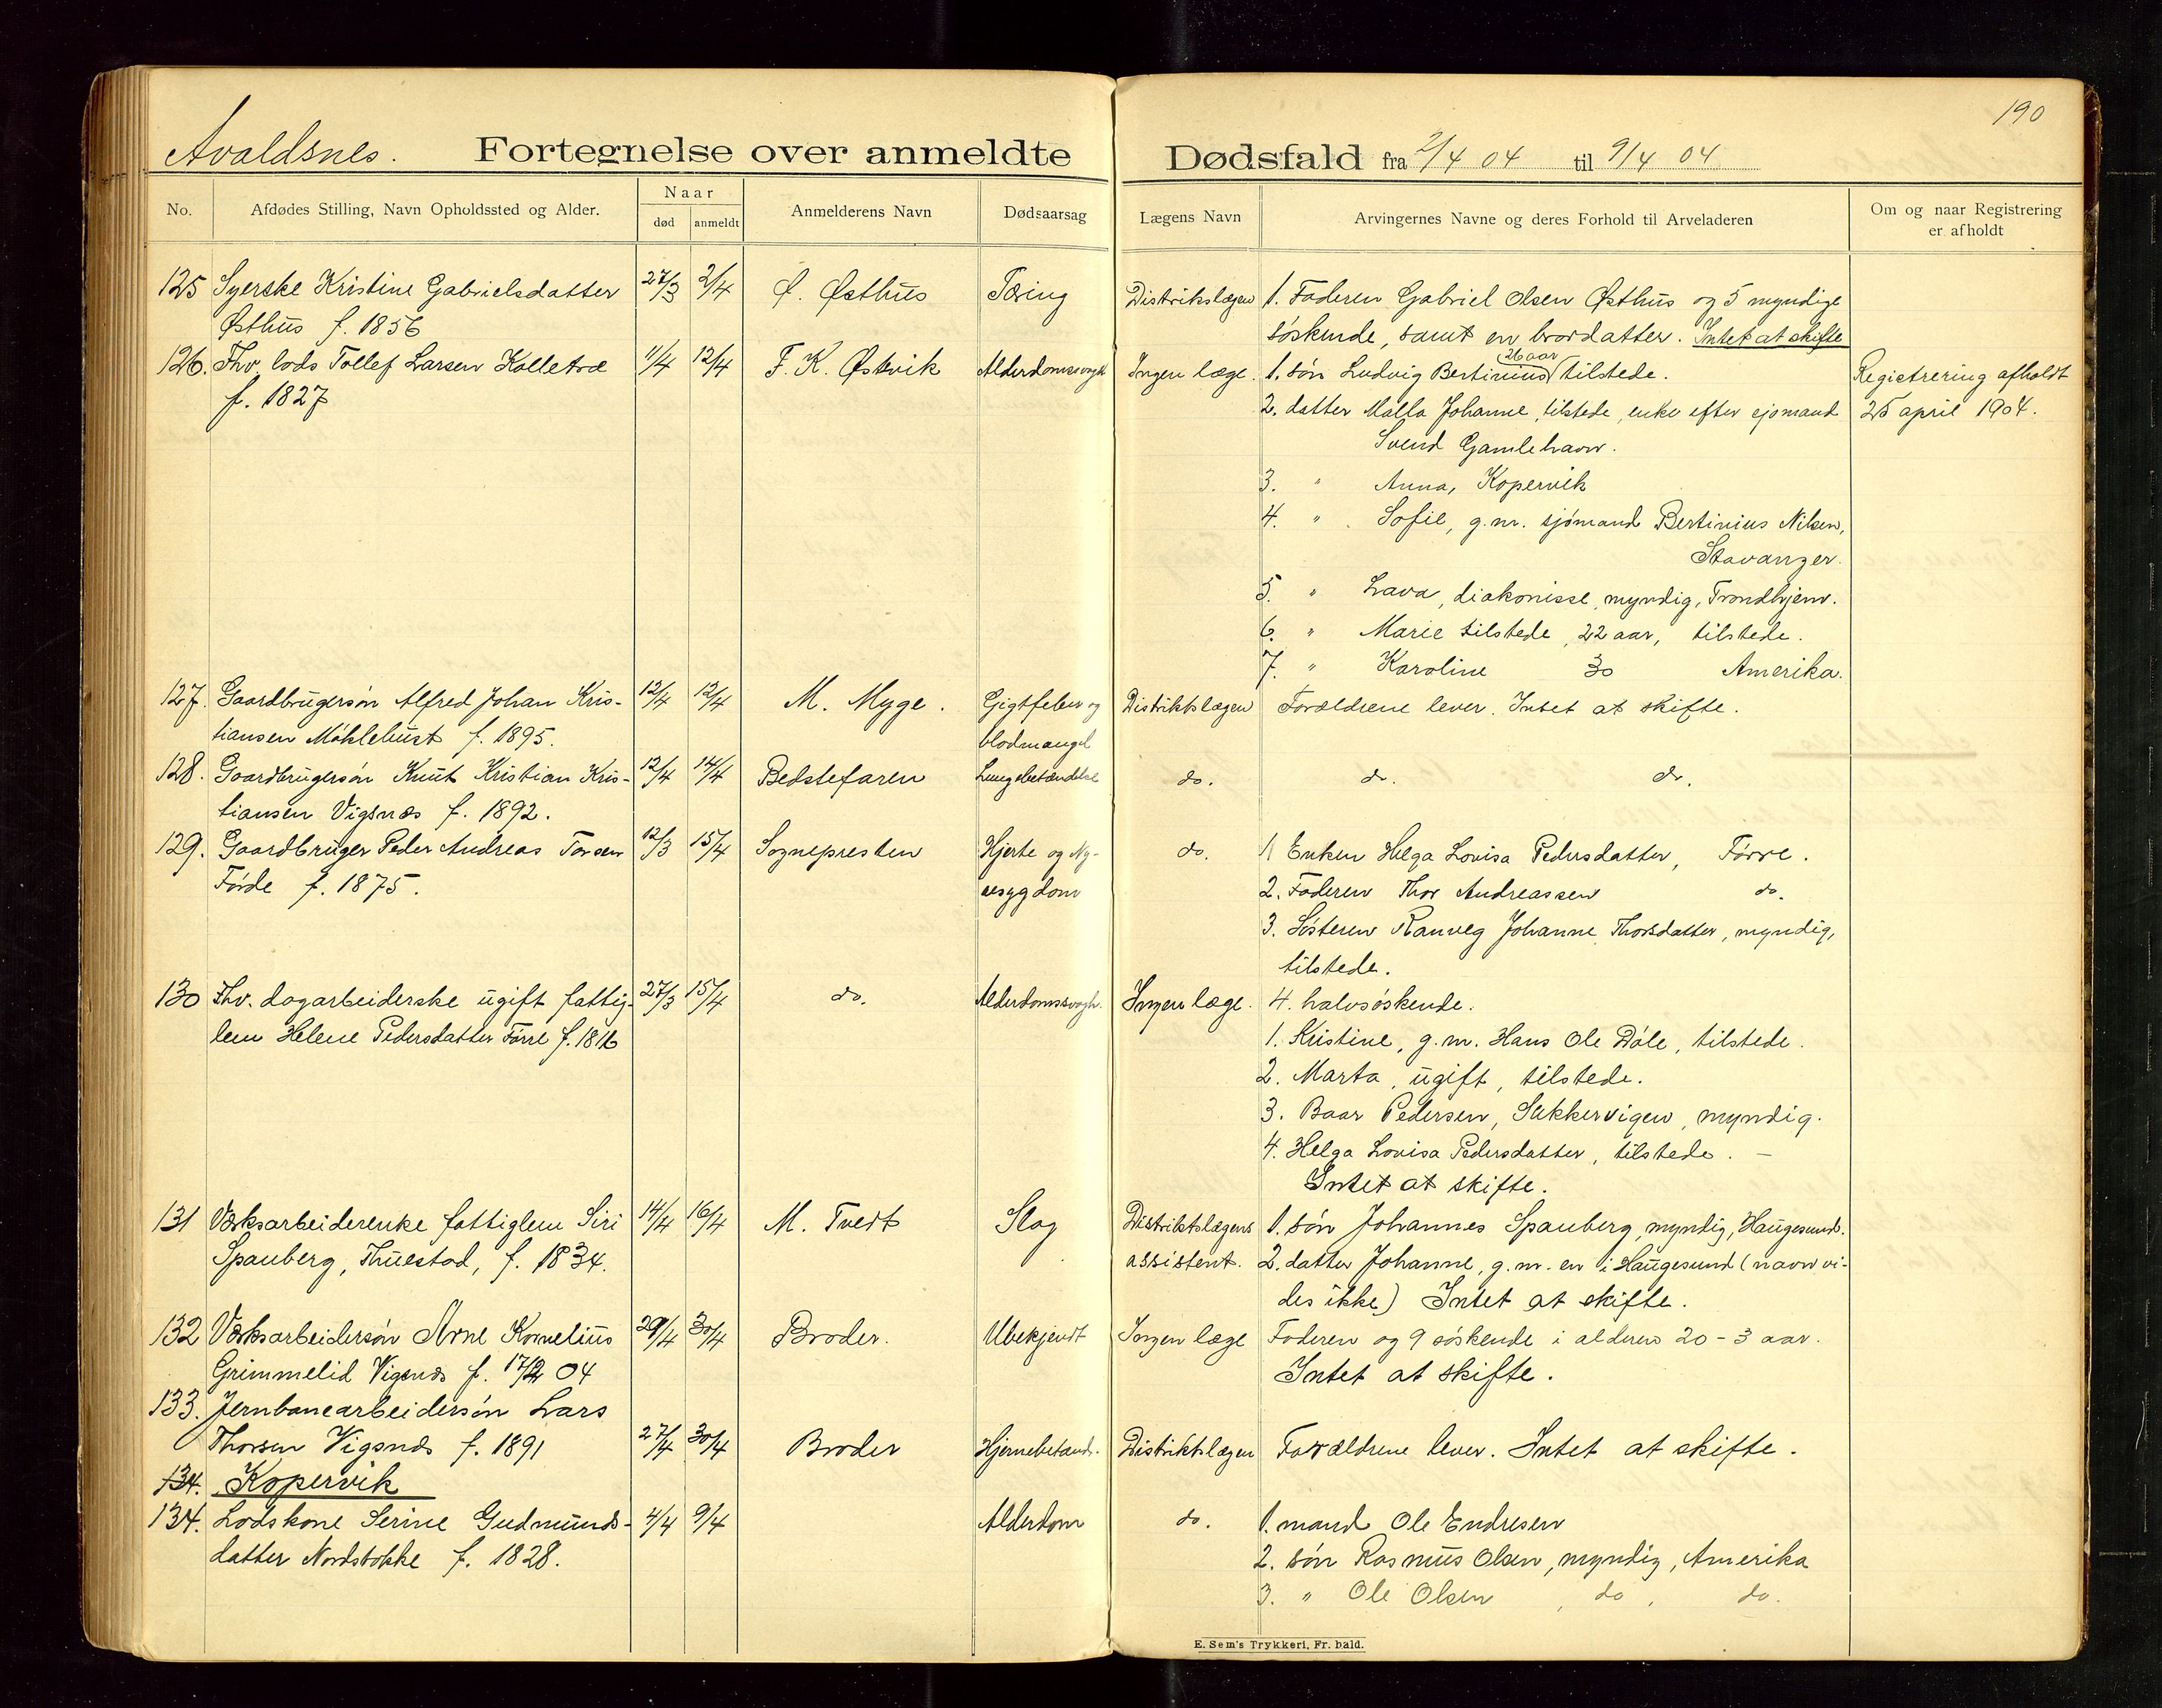 190
Avaldsnes. Fortegnelse over anmeldte Dødsfald fra 2/4 04 til 9/4 04
No. Afdødes Stilling, Navn Opholdssted og Alder. Naar død anmeldt Anmelderens Navn Dødsaarsag Lægens Navn Arvingernes Navne og deres Forhold til Arveladeren Om og naar Registrering er afholdt
125 Syerske Kristine Gabrielsdatter 27/3 2/4 Ø. Østhus Tæring Distrikslægen 1. Faderen Gabriel Olsen Østhus og 5 myndige
Østhus f. 1856 søskende, samt en brordatter. Intet at skifte
126. Fhv. lods Tollef Larsen Kolletvæ 11/4 12/4 F. K. Østvik Alderdomssvagh Ingen læge. 1. søn Ludvig Bertinius 26 aar tilstede. Registrering afholdt
f. 1827 2. datter Malla Johanne, tilstede, enke efter sjømand 25 april 1904.
Svend Gamlehavn.
3. " Anna, Kopervik
4. " Sofie, g.m. sjømand Bertinius Nilsen,
Stavanger.
5. " Lava, diakonisse, myndig, Trondhjem.
6. " Marie tilstede, 22 aar, tilstede.
7. " Karoline 30 Amerika.
127. Gaardbrugersøn Alfred Johan Kris- 12/4 12/4 M. Myge. Gigtfeber og Distriktslægen Forældrene lever. Intet at skifte.
tiansen Møklebust f. 1895. blodmangel
128. Gaardbrugersøn Knut Kristian Kris- 12/4 14/4 Bedstefaren Lungebetændelse do. do. do.
tiansen Vigsnæs f. 1892.
129. Gaardbruger Peder Andreas Torsen 12/3 15/4 Sognepresten Hjerte og Ny- do. 1 Enken Helga Lovisa Pedersdatter, Førre.
Førde f. 1875. resygdom 2. Faderen Thor Andreassen do.
3. Søsteren Ranveg Johanne Thorsdatter, myndig,
tilstede.
130 Fhv. dagarbeiderske ugift fattig- 27/3 15/4 do. Alderdomssvagh. Ingen læge. 4. halvsøskende.
lem Helene Pedersdatter Førre f. 1816 1. Kristine, g.m. Hans Ole Døle, tilstede.
2. Marta, ugift, tilstede.
3. Baar Pedersen, Sakkervigen, myndig.
4. Helga Lovisa Pedersdatter, tilstede. –
Intet at skifte.
131 Værksarbeiderenke fattiglem Siri 14/4 16/4 M. Tvedt Slag Distriktslægens 1. søn Johannes Spauberg, myndig, Haugesund.
Spauberg, Thuestad, f. 1834. assistent. 2. datter Johanne, g.m. en i Haugesund (navn vi-
des ikke) Intet at skifte.
132 Værksarbeidersøn Arne Kornelius 29/4 30/4 Broder. Ubekjendt Ingen læge Faderen og 9 søskende i alderen 20 – 3 aar.
Grimmelid Vigsnæs f. 17/2 04 Intet at skifte.
133. Jernbanearbeidersøn Lars
Thorsen Vigsnæs f. 1891 27/4 30/4 Broder Hjernebetænd. Distriktslægen Forældrene lever. Intet at skifte.
134. Kopervik
134. Lodskone Serine Gudmunds- 4/4 9/4 Alderdom do. 1. mand Ole Endresen
datter Nordstokke f. 1828. 2. søn Rasmus Olsen, myndig, Amerika
3. " Ole Olsen, do, do.
E. Sem's Trykkeri, Fr. hald.